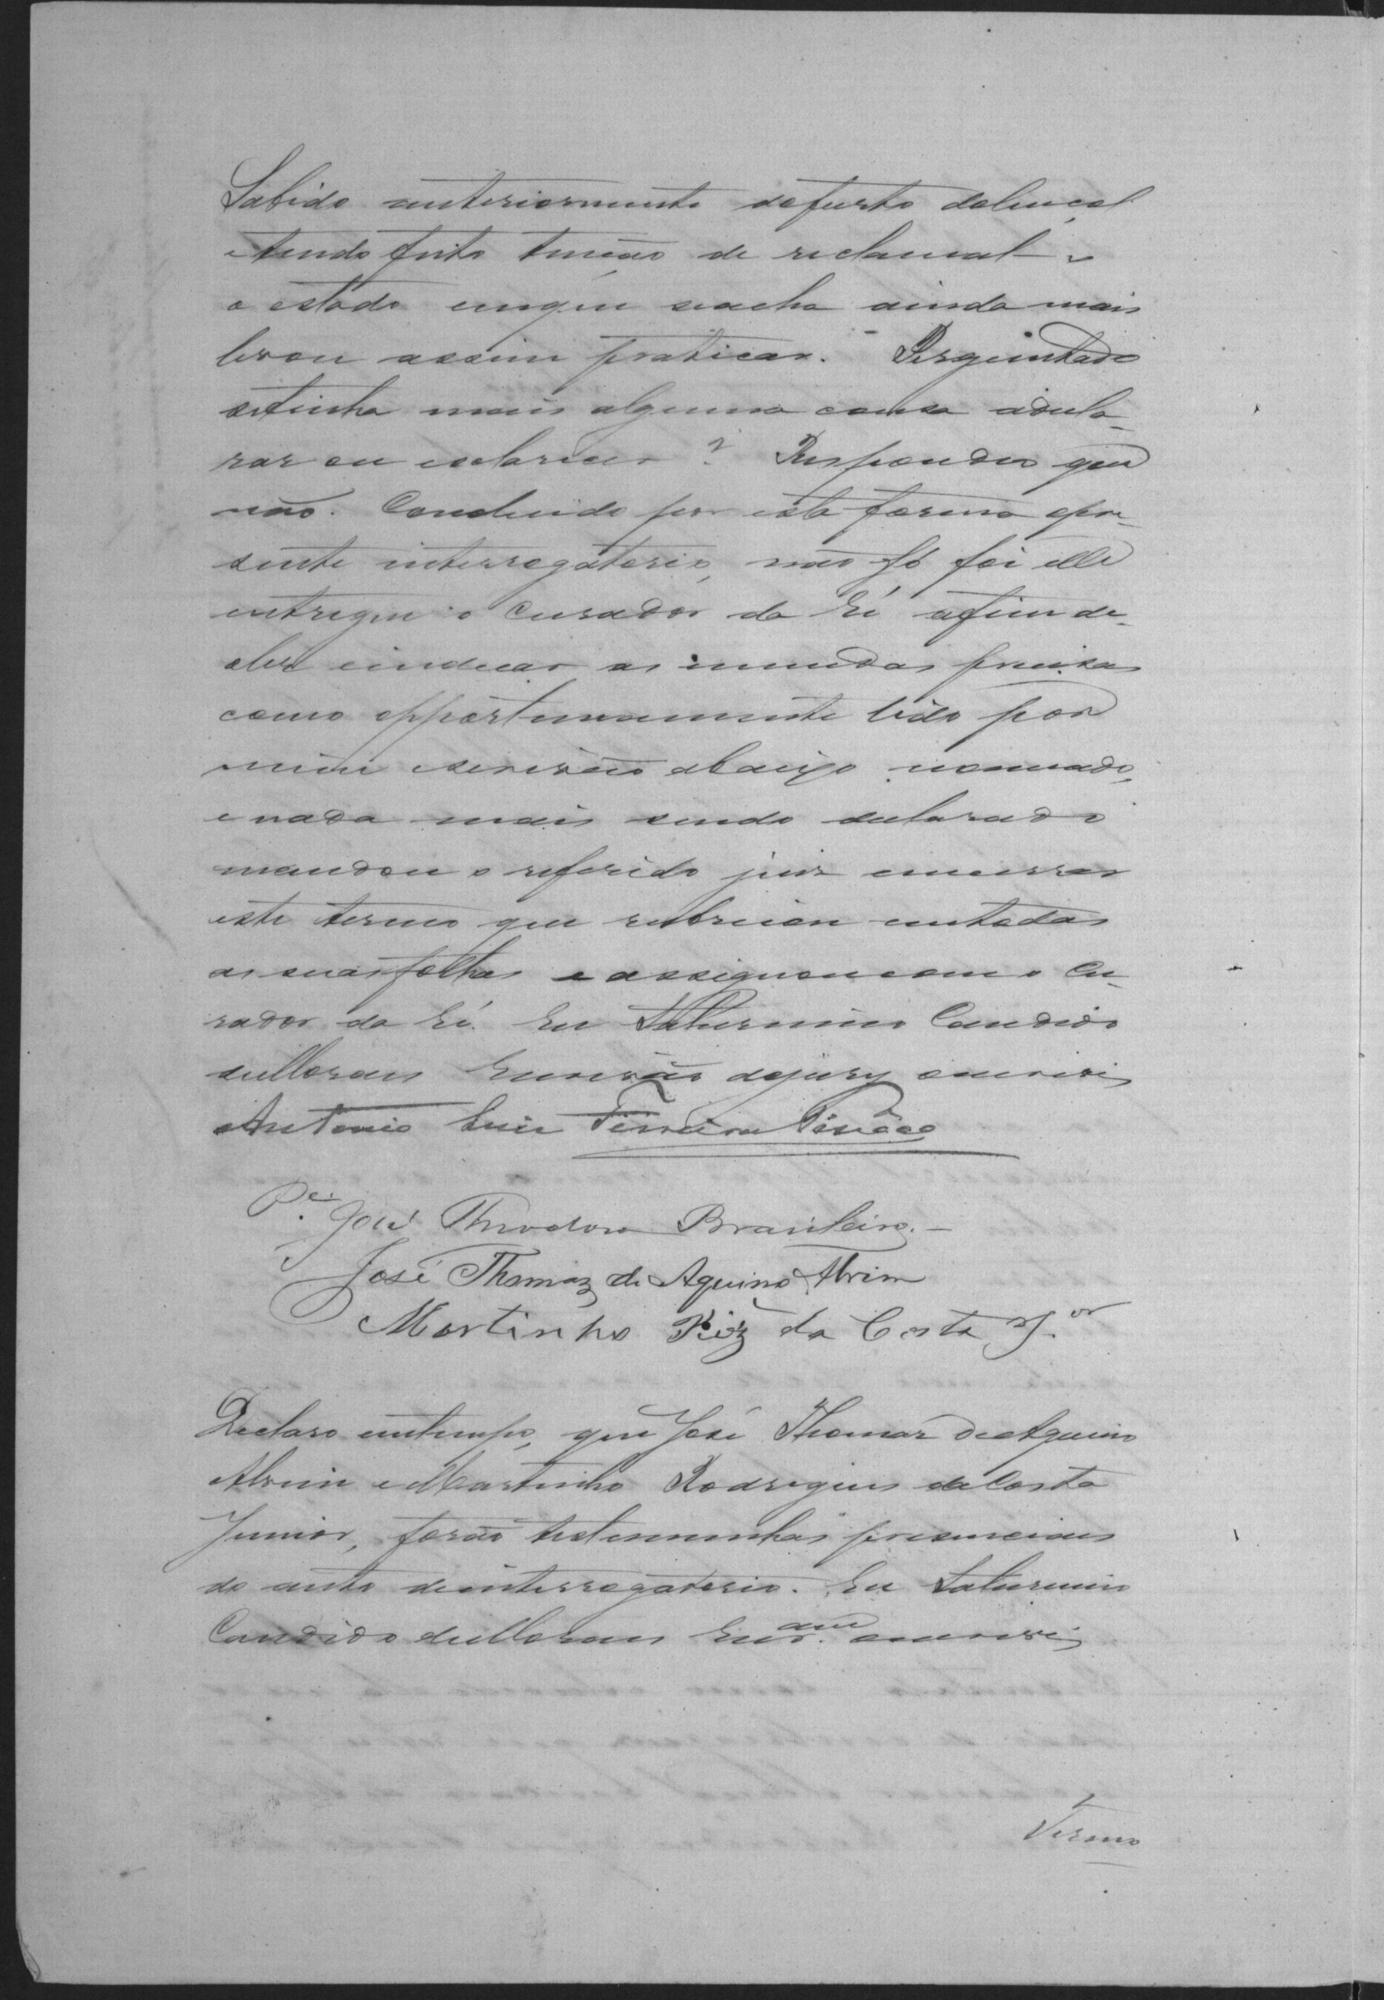 Sabido anteriormente dofurto dolençol
etendo feito tenção de reclamal-o
o estado emque seacha ainda mais
levou assim praticar. Perguntado
setinha mais alguma cousa adecla-
rar ou esclarecer? Respondeu que
não. Concluido por esta forma opre-
sente interrogatorio, não só foi elle
entregue o Curador da Ré afim de
elle indicar as emendas precisas
como opportunamente lido por
mim escrivão abaixo nomeado,
e nada mais sendo declarado
mandou o referido juiz encerrar
este termo que rubricou emtodas
as suas folhas e assignou com o Cu-
rador da Ré. Eu Saturnino Candido
deMoraes Escrivão dojury oescrevi
Antonio Luiz Ferreira
Pe. José Theodoro Brasileiro.-
José Thomaz de Aquino Alvim
Martinho Riz da Costa Jor
Declaro emtempo, que José Thomaz deAquino
Alvim eMartinho Rodrigues daCosta
Junior, forão testemunhas presenciaes
do auto deinterrogatorio. Eu Saturnino
Candido deMoraes oescrevi
Termo